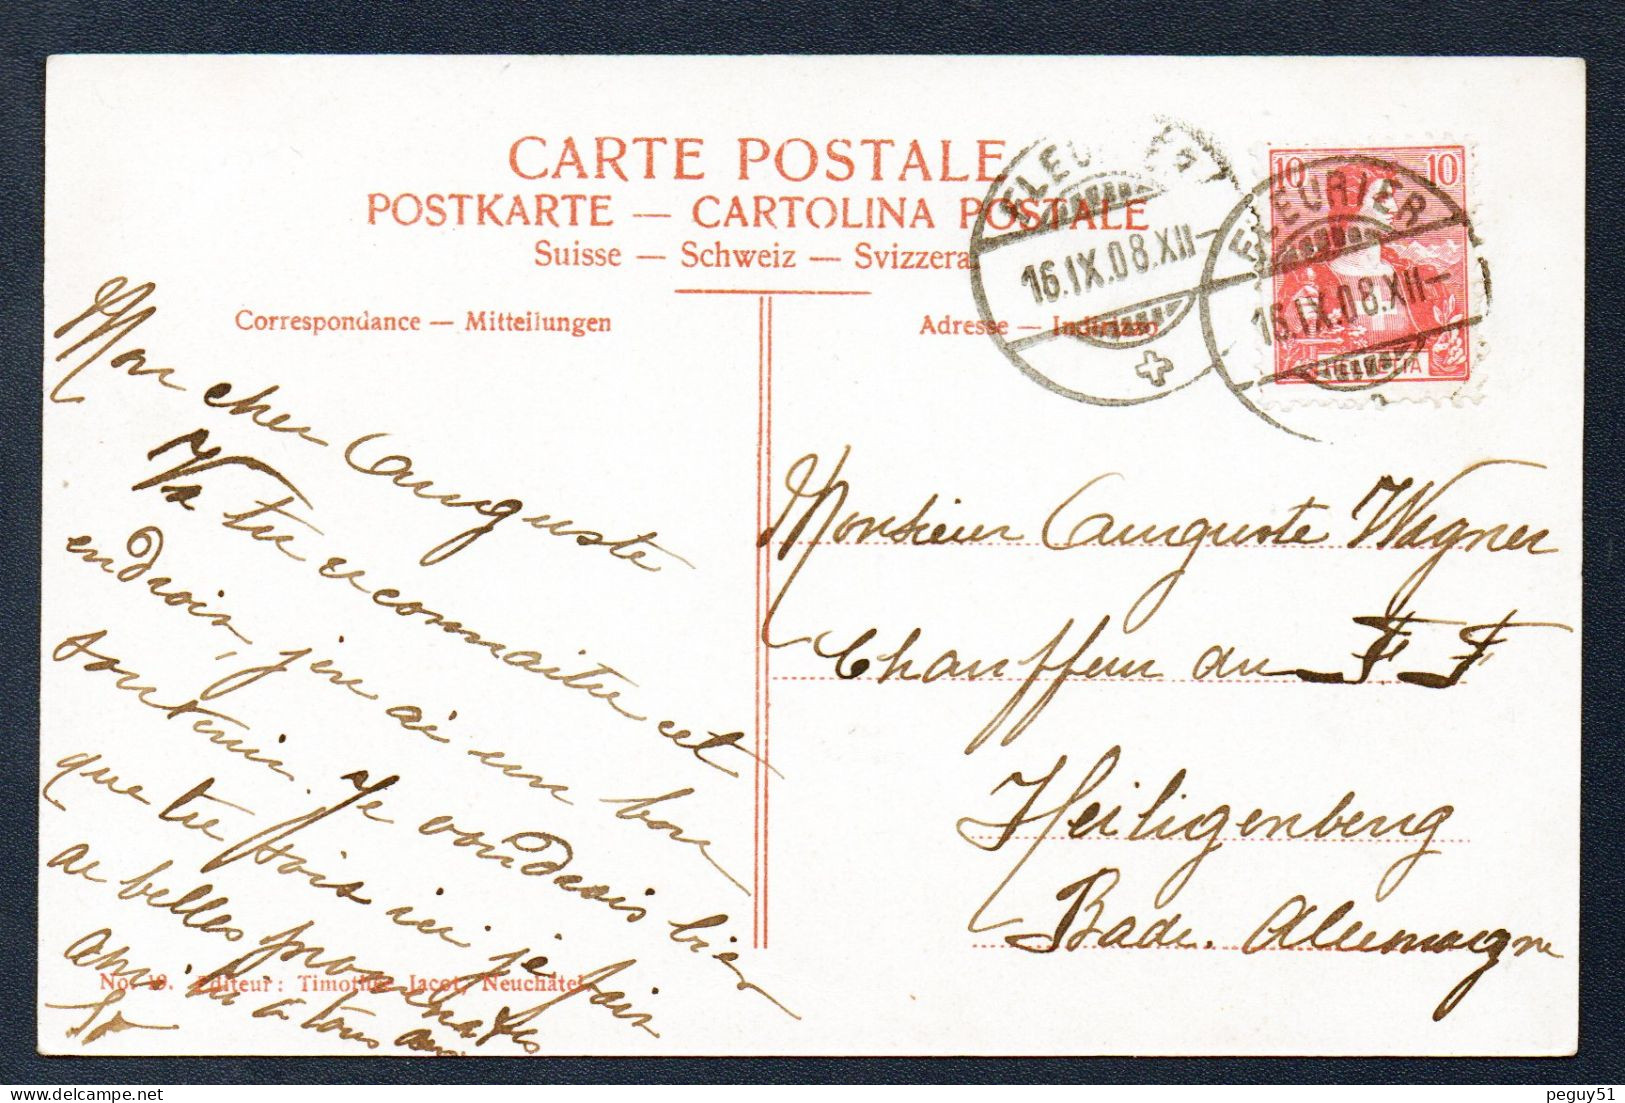 CARTE POSTALE
POSTKARTE — CARTOLINA POSTALE
Suisse — Schweiz — Svizzera
Correspondance — Mitteilungen
Adresse — Indirizzo
FLEURIER
16.IX.08.XII—
FLEURIER
16.IX.08.XII—
10 10
HELVETIA
Mon cher Auguste
Va tu reconnaitre cet
endroit, j'en ai un bon
souvenir. Je voudrais bien
que tu sois ici je fais
de belles promenades
ami. à tous
Monsieur Auguste Wagner
Chauffeur au F F
Heiligenberg
Bade. Allemagne
No. 19. Editeur: Timothée Jacot, Neuchâtel
Delcampe.net
peguy51